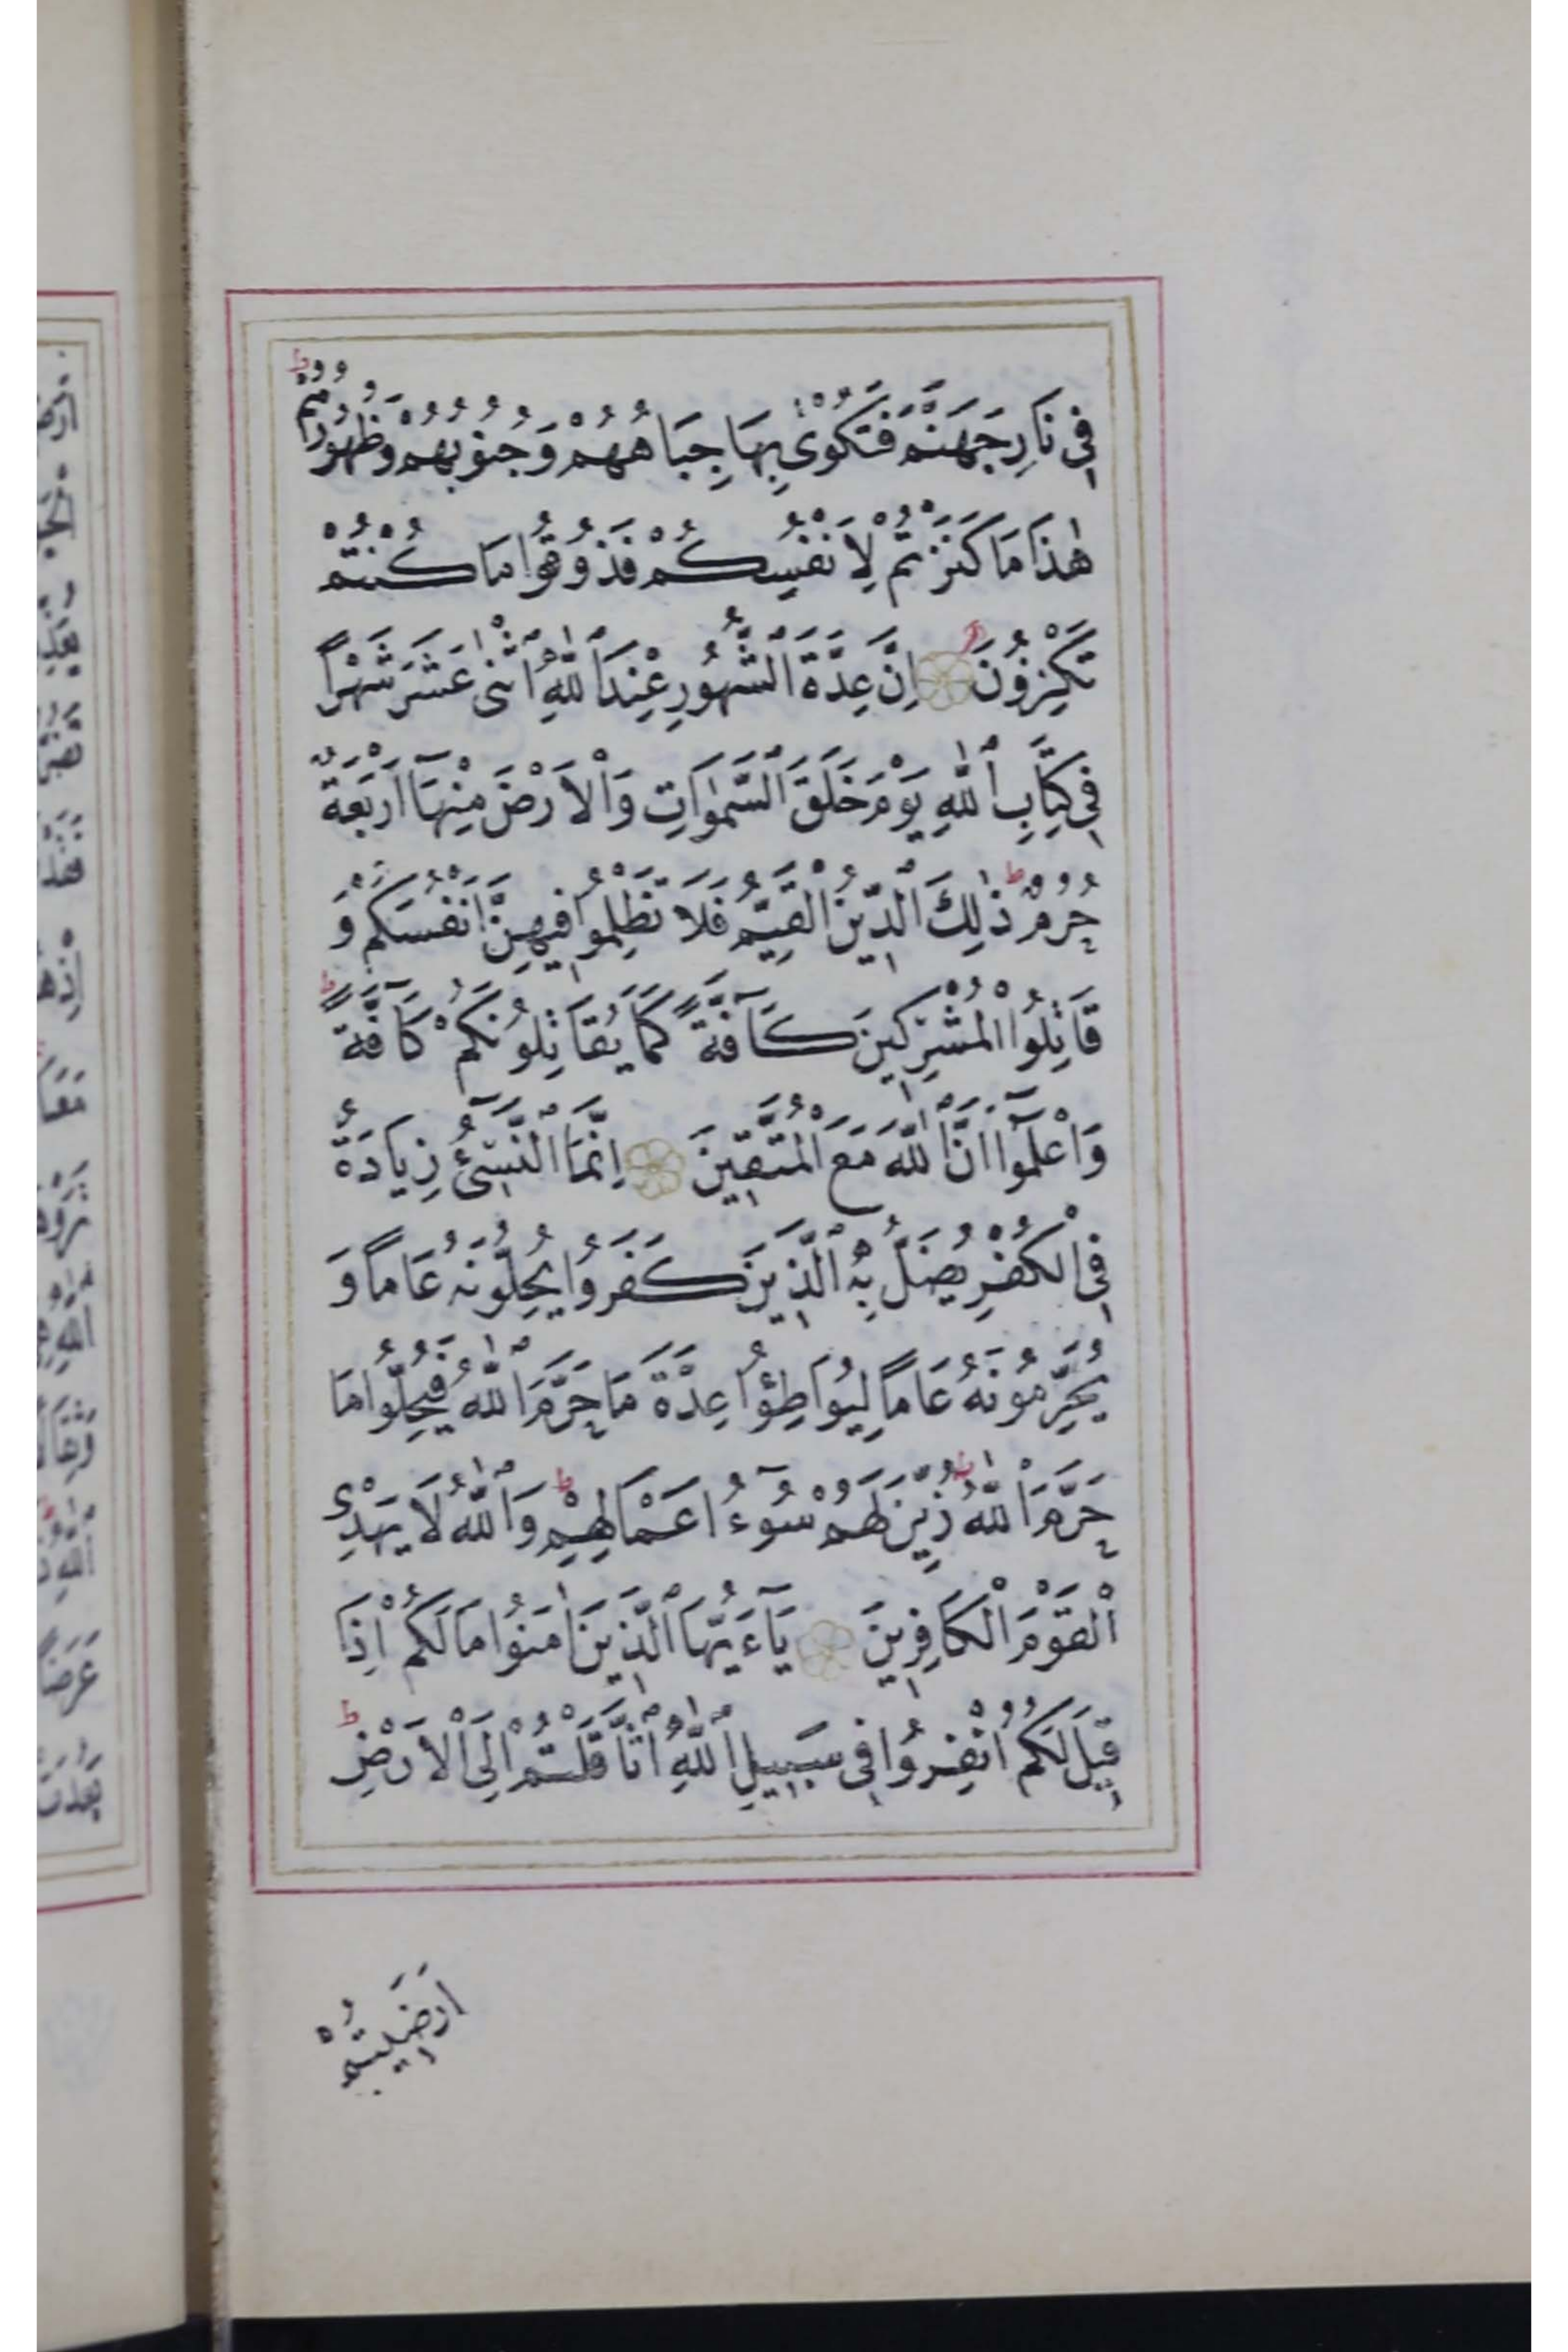 فِي نَارِ جَهَنَّمَ فَتُكْوٰى بِهَا جِبَاهُهُمْ وَجُنُوبُهُمْ وَظُهُورُهُمْ ط
هٰذَا مَا كَنَزْتُمْ لِاَنْفُسِكُمْ فَذُوقُوا مَا كُنْتُمْ
تَكْنِزُونَ اِنَّ عِدَّةَ ٱلشُّهُورِ عِنْدَ ٱللّٰهِ ٱثْنٰى عَشَرَ شَهْرًا
فِي كِتَابِ ٱللّٰهِ يَوْمَ خَلَقَ ٱلسَّمٰوَاتِ وَٱلْاَرْضَ مِنْهَآ اَرْبَعَةٌ
حُرُمٌ ط ذٰلِكَ ٱلدِّينُ ٱلْقَيِّمُ فَلَا تَظْلِمُوا فِيهِنَّ اَنْفُسَكُمْ وَ
قَاتِلُوا ٱلْمُشْرِكِينَ كَآفَّةً كَمَا يُقَاتِلُونَكُمْ كَآفَّةً ط
وَٱعْلَمُوٓا اَنَّ ٱللّٰهَ مَعَ ٱلْمُتَّقِينَ اِنَّمَا ٱلنَّسِىٓءُ زِيَادَةٌ
فِي ٱلْكُفْرِ يُضَلُّ بِهِ ٱلَّذِينَ كَفَرُوا يُحِلُّونَهُ عَامًا وَ
يُحَرِّمُونَهُ عَامًا لِيُوَاطِؤُا عِدَّةَ مَا حَرَّمَ ٱللّٰهُ فَيُحِلُّوا مَا
حَرَّمَ ٱللّٰهُ ط زُيِّنَ لَهُمْ سُوٓءُ اَعْمَالِهِمْ ط وَٱللّٰهُ لَا يَهْدِى
ٱلْقَوْمَ ٱلْكَافِرِينَ يَآءَيُّهَا ٱلَّذِينَ اٰمَنُوا مَا لَكُمْ اِذَا
قِيلَ لَكُمُ ٱنْفِرُوا فِي سَبِيلِ ٱللّٰهِ ٱثَّاقَلْتُمْ اِلَى ٱلْاَرْضِ ط
اَرَضِيتُمْ